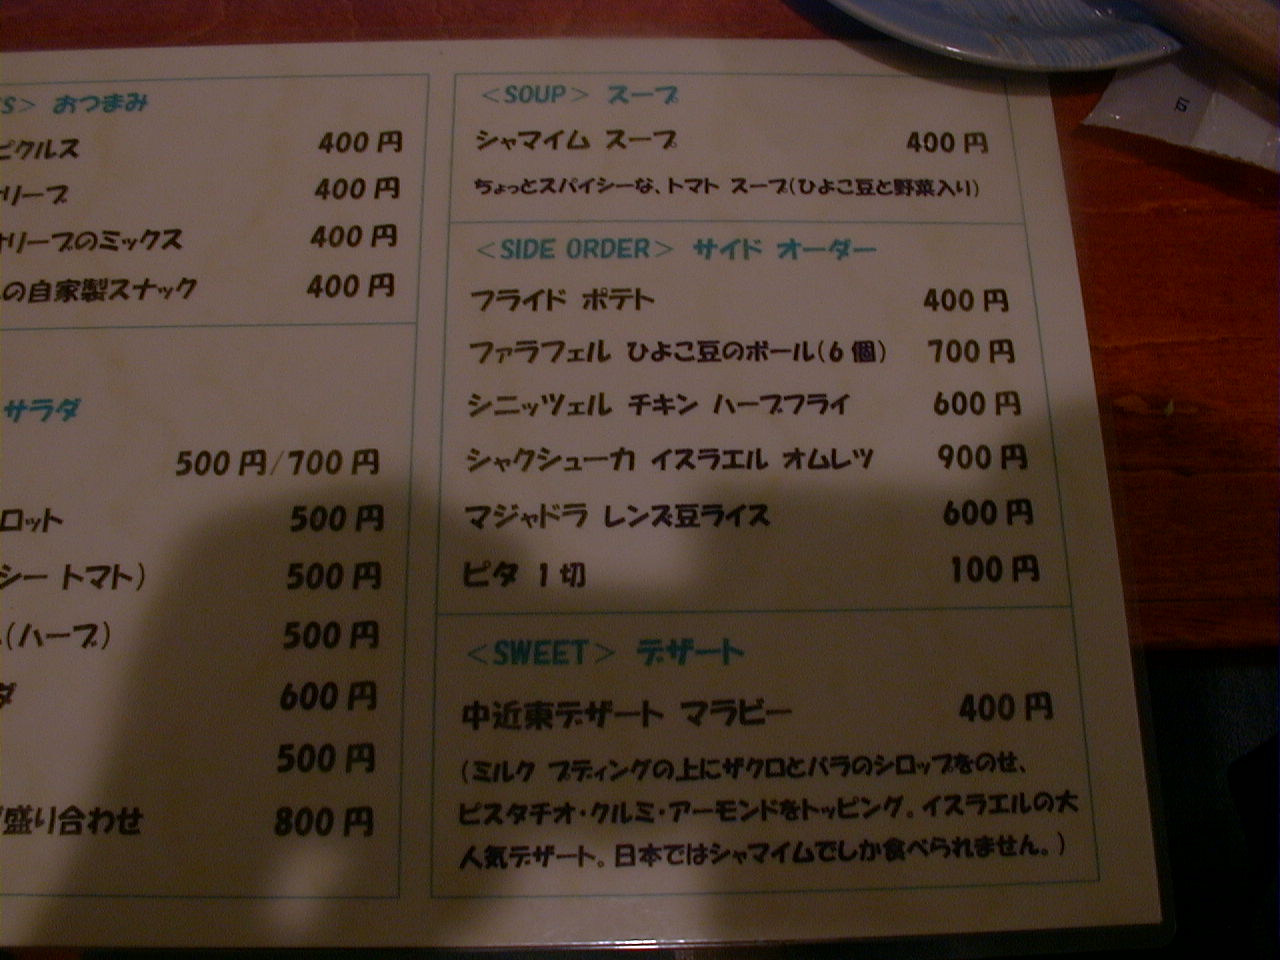 S> おつまみ
ピクルス 400円
リーブ 400円
オリーブのミックス 400円
の自家製スナック 400円
サラダ
500円/700円
ロット 500円
シートマト) 500円
(ハーブ) 500円
ダ 600円
500円
盛り合わせ 800円
<SOUP> スープ
シャマイム スープ 400円
ちょっとスパイシーな、トマト スープ(ひよこ豆と野菜入り)
<SIDE ORDER> サイド オーダー
フライド ポテト 400円
ファラフェル ひよこ豆のボール(6個) 700円
シニッツェル チキン ハーブフライ 600円
シャクシューカ イスラエル オムレツ 900円
マジャドラ レンズ豆ライス 600円
ピタ 1切 100円
<SWEET> デザート
中近東デザート マラビー 400円
(ミルク プディングの上にザクロとバラのシロップをのせ、
ピスタチオ・クルミ・アーモンドをトッピング。イスラエルの大
人気デザート。日本ではシャマイムでしか食べられません。)